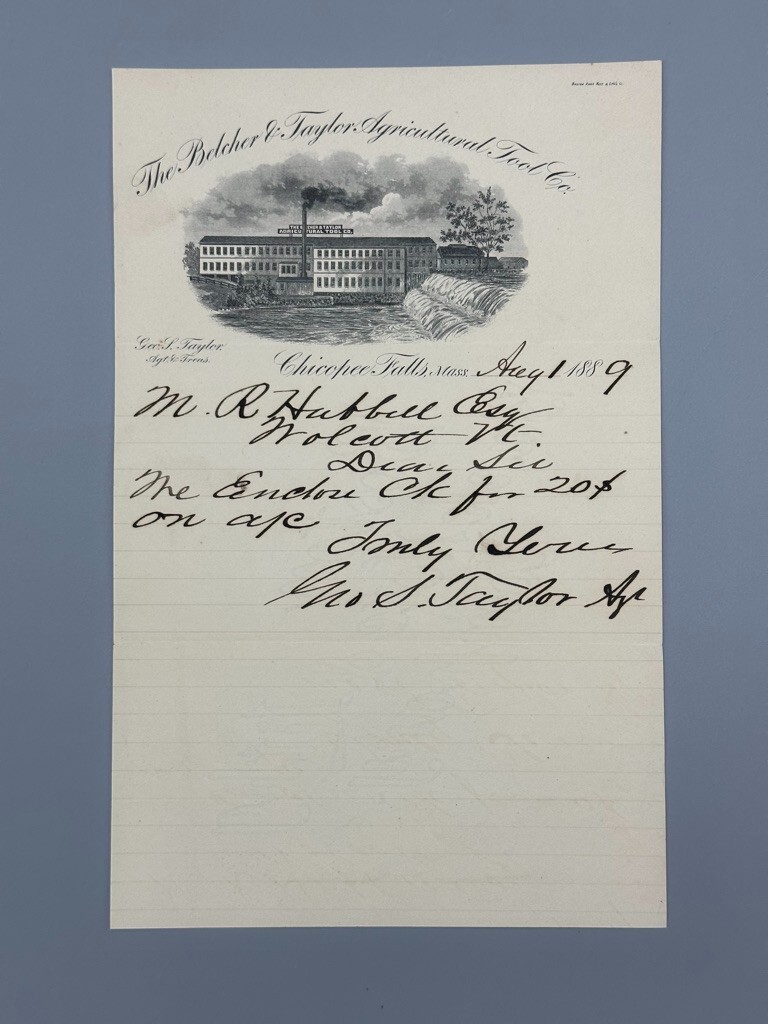 The Belcher & Taylor Agricultural Tool Co.
THE BELCHER & TAYLOR
AGRICULTURAL TOOL CO.
Geo. S. Taylor,
Agt. & Treas.
Chicopee Falls, Mass. Aug 1 1889
M. R Hubbell Esq
Wolcott Vt.
Dear Sir
We Enclose Ck for 20$
on a/c
Truly Yours
Geo S. Taylor Agt